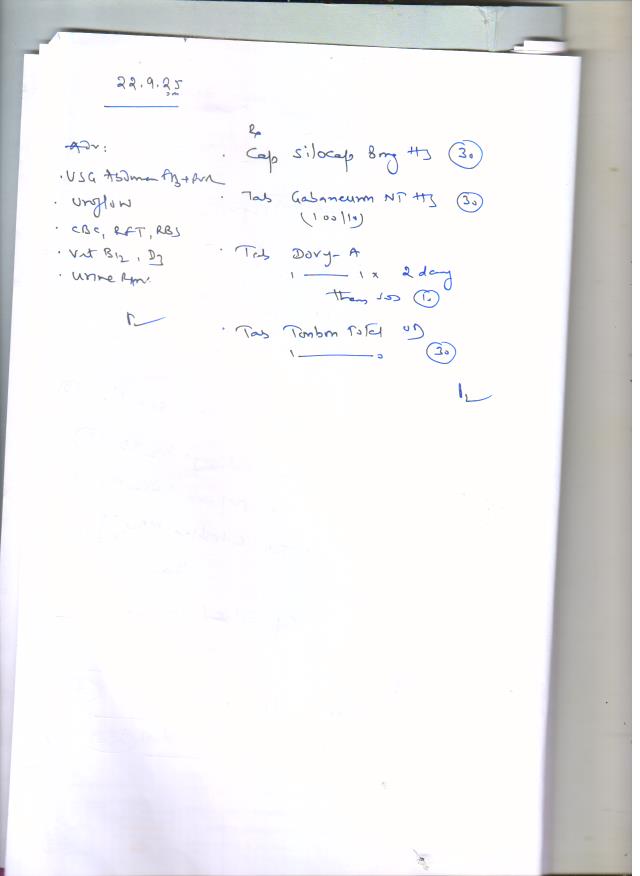 22.9.25
Adv:
· USG Abdomen + PVR
· Uroflow
· CBC, RFT, RBS
· Vit B12, D3
· Urine R/m
Rp
· Cap Silocap 8mg HS 30
· Tab Gabaneuron NT HS 30
(100/10)
· Tab Doxy-A
1 —— 1 x 2 day
then sos 10
· Tab Total OD
1 —— 0 30